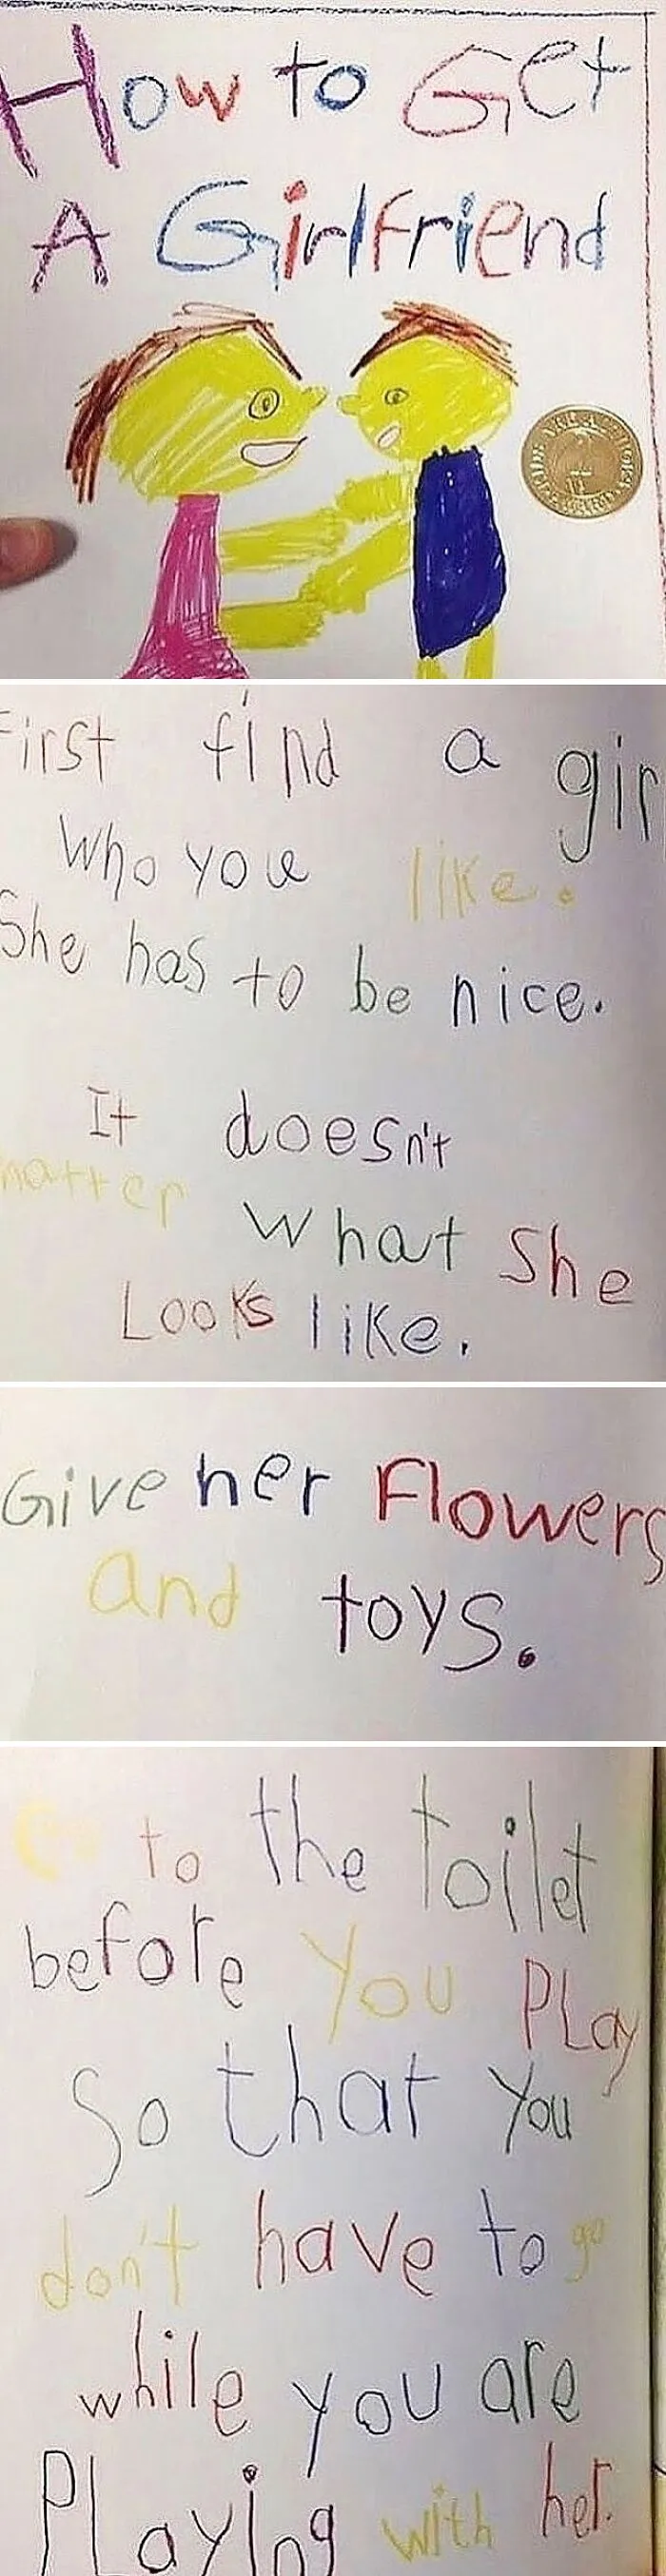 How to Get
A Girlfriend
First find a girl
Who you like.
She has to be nice.
It doesn't
matter
what she
Looks like.
Give her Flowers
and toys.
to the toilet
before you PLay
So that you
don't have to go
while you are
PLaying with her.